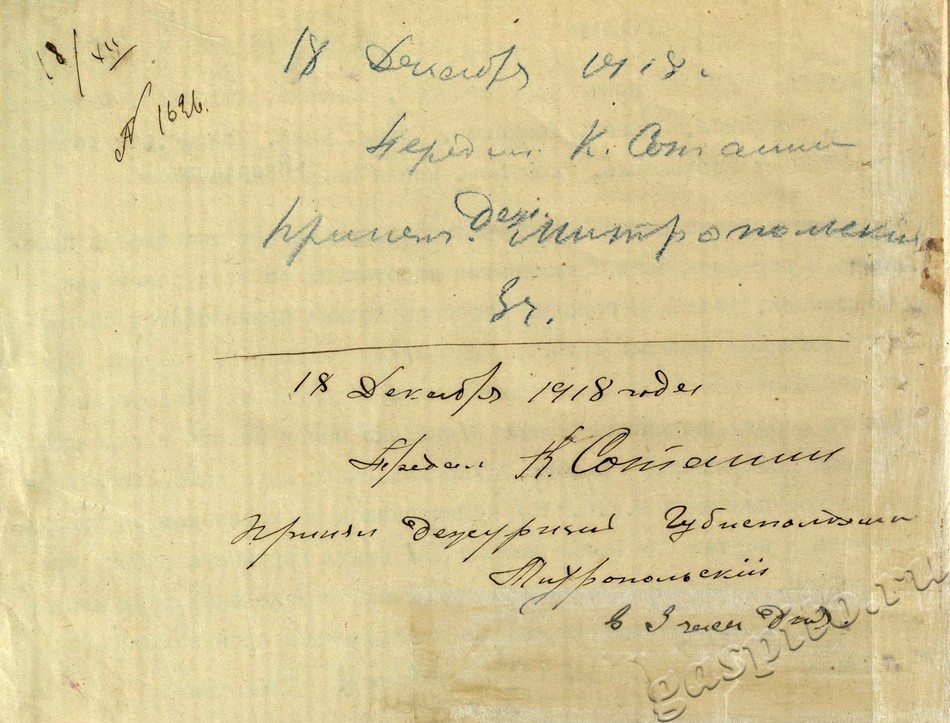 18/XII
N 1626.
18 Декабря 1918.
Передал К. Соташин
Принял. Деж. Митропольский
3 ч.
18 Декабря 1918 года
Передал К. Соташин
Принял Дежурный Губисполкома
Митропольскій
в 3 часа Дня.
gaspiko.ru